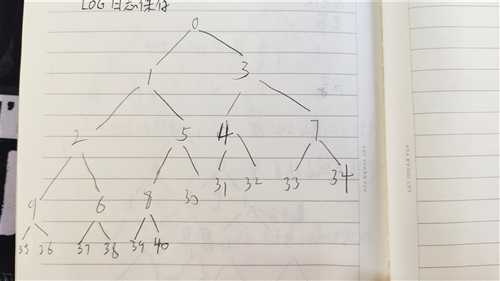 LOG日志保存
0
1 3
2 5 4 7
9 6 8 30 31 32 33 34
35 36 37 38 39 40